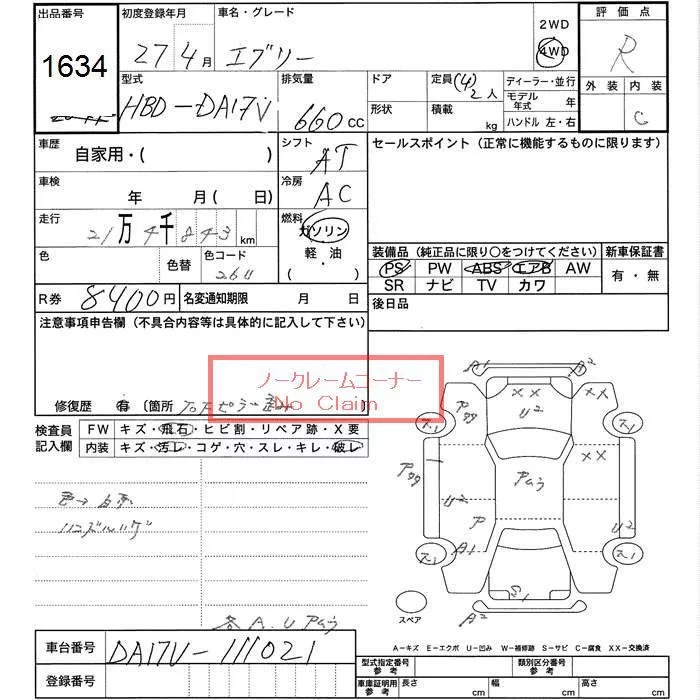 出品番号 初度登録年月 車名・グレード 2WD 評価点
1634 27 4月 エブリー 4WD R
型式 排気量 ドア 定員 (4) 2人 ディーラー・並行 外装 内装
HBD-DA17V 660cc 形状 積載 kg モデル年式 年 C
ハンドル 左・右
車歴 自家用・( ) シフト AT セールスポイント (正常に機能するものに限ります)
車検 年 月( 日) 冷房 AC
走行 21万4千843km 燃料 ガソリン
軽・油
・( )
色 色替 色コード 26U 装備品 (純正品に限り○をつけてください) 新車保証書
PS PW ABS エアB AW 有・無
SR ナビ TV カワ
R券 8400円 名変通知期限 月 日 後日品
注意事項申告欄 (不具合内容等は具体的に記入して下さい)
ノークレームコーナー
No Claim
修復歴 有 〔箇所
検査員 FW キズ・飛石・ヒビ割・リペア跡・X要
記入欄 内装 キズ・汚レ・コゲ・穴・スレ・キレ・破レ
A1 A2
××  ××
U2
××
アムラ
U2 ア U2
A1
S1
スペア A2
各A.Uアムラ
A-キズ E-エクボ U-凹み W-補修跡 S-サビ C-腐食 XX-交換済
車台番号 DA17V-111021
登録番号
型式指定番号 参考 類別区分番号 参考
車庫証明用 参考 長さ cm 幅 cm 高さ cm